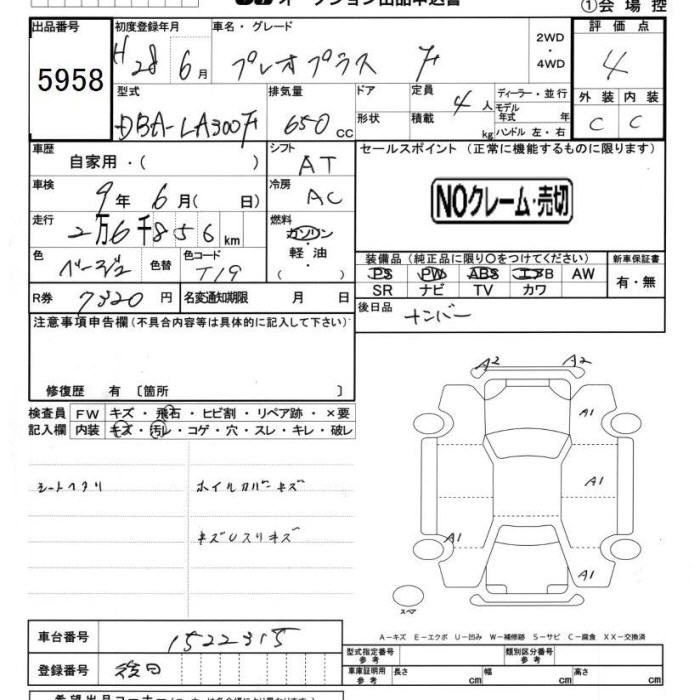 オークション出品申込書 ①会場控
出品番号 初度登録年月 車名・グレード 評価点
5958 H28年6月 プレオプラス F 2WD・4WD 4
型式 排気量 ドア 定員 ディーラー・並行 外装 内装
DBA-LA300F 650cc 形状 4人 積載 kg モデル年式 年 ハンドル 左・右 C C
車歴 シフト セールスポイント (正常に機能するものに限ります)
自家用・( ) AT
車検 冷房
9年6月( 日) AC NOクレーム・売切
走行 燃料
2万6千856km ガソリン・軽油・( )
色 色替 色コード 装備品 (純正品に限り○をつけてください) 新車保証書
ベージュ T19 PS PW ABS エアB AW 有・無
SR ナビ TV カワ
R券 7320円 名変通知期限 月 日 後日品 ナンバー
注意事項申告欄(不具合内容等は具体的に記入して下さい)
修復歴 有 〔箇所 〕
検査員 FW キズ・飛石・ヒビ割・リペア跡・×要
記入欄 内装 キズ・汚レ・コゲ・穴・スレ・キレ・破レ
A2 A2
A1
シートヘタリ ホイルカバーキズ A1
キズUスリキズ A1
A1
スペア
A-キズ E-エクボ U-凹み W-補修跡 S-サビ C-腐食 XX-交換済
車台番号 1522315 型式指定番号 参考 類別区分番号 参考
登録番号 後日 車庫証明用 参考 長さ cm 幅 cm 高さ cm
希望出品コーナー